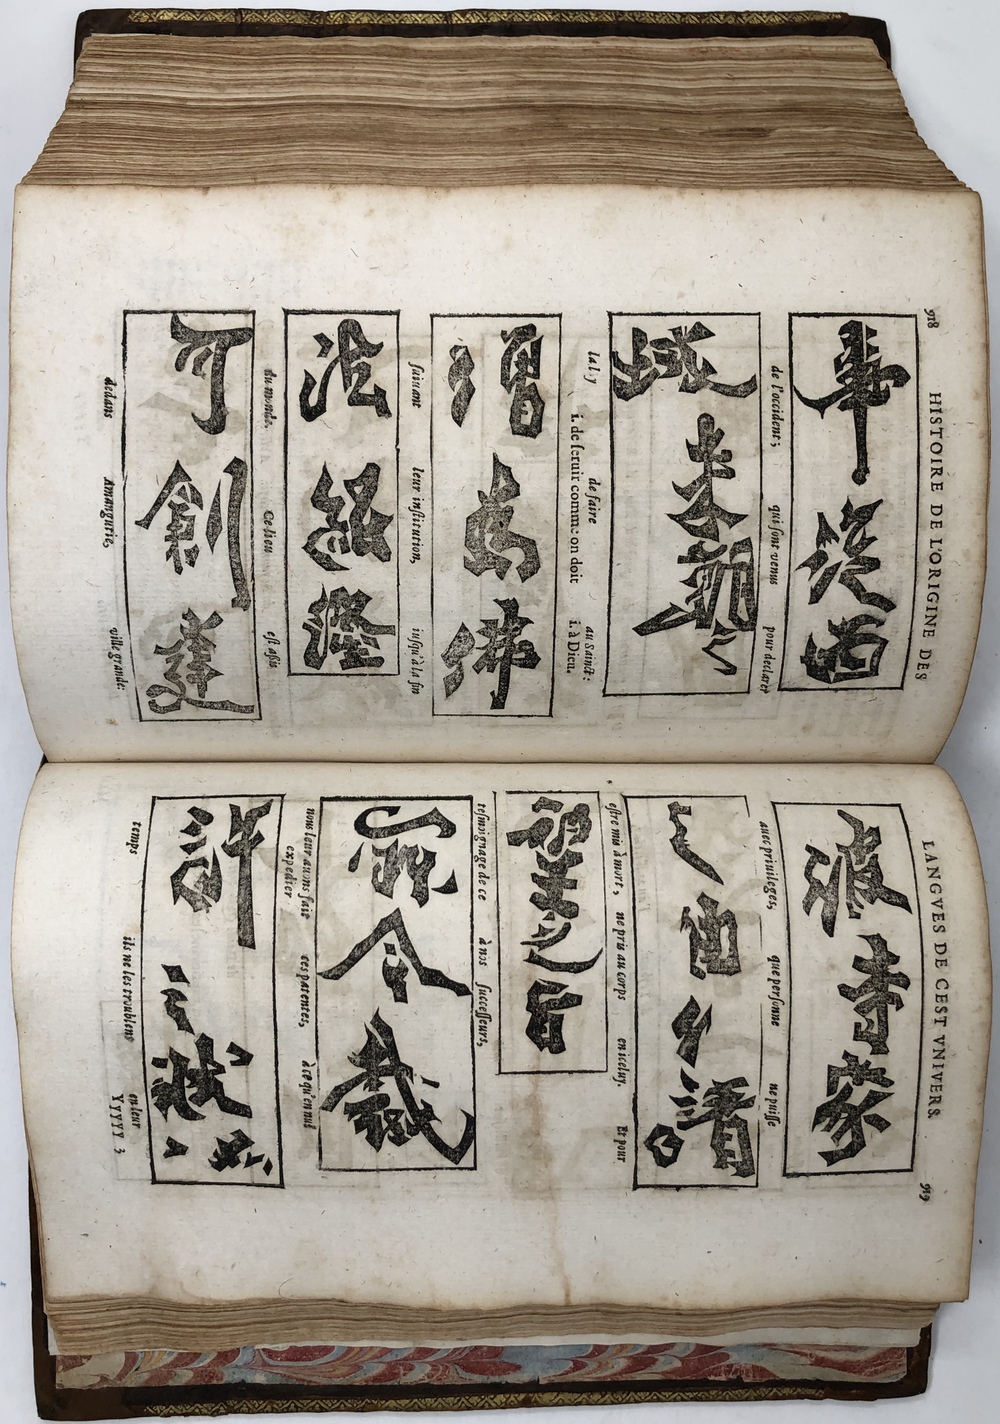 918 HISTOIRE DE L'ORIGINE DES
事從西
de l'occident; qui ſont venus pour declarer
域來朝之
la loy de faire au Sainct:
i. de ſeruir comme on doit i. à Dieu.
僧為佛
ſuiuant leur inſtitution, iuſqu'à la fin
法紹隆
du monde. Ce lieu eſt aſſis
可創建
dedans Amangutie, ville grande:
LANGVES DE CEST VNIVERS. 919
彼寺家
auec priuileges, que perſonne ne puiſſe
之由任請
eſtre mis à mort, ne pris au corps en iceluy. Et pour
望之旨
teſmoignage de ce à nos ſucceſſeurs,
所令裁
nous leur auons fait ces patentes, à ce qu'en nul
expedier
許之状
temps ils ne les troublent en leur
Yyyyy 3